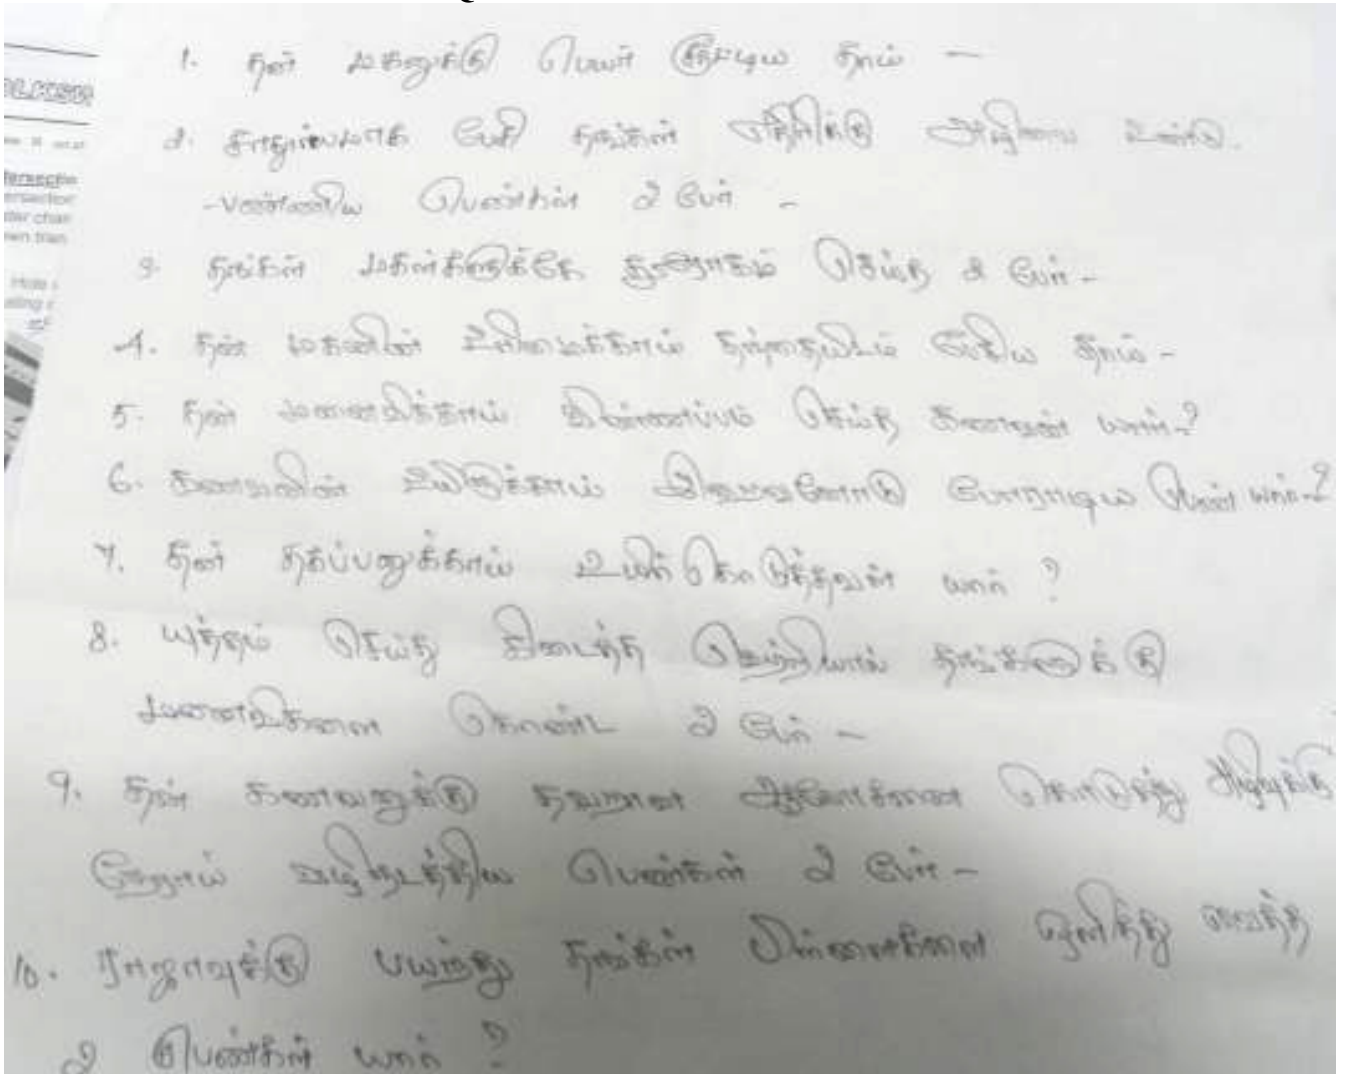 1. தன் மகனுக்கு பெயர் சூட்டிய தாய் -
2. சாதுர்யமாக பேசி தங்கள் எதிரிக்கு அழிவை உண்டு
பண்ணிய பெண்கள் 2 பேர் -
3. தங்கள் மகள்களுக்கே துரோகம் செய்த 2 பேர் -
4. தன் மகனின் உரிமைக்காய் தந்தையிடம் பேசிய தாய் -
5. தன் மனைவிக்காய் விண்ணப்பம் செய்த கணவன் யார்-?
6. கணவனின் உயிருக்காய் இறைவனோடு போராடிய பெண் யார்-?
7. தன் தகப்பனுக்காய் உயிர் கொடுத்தவள் யார் ?
8. யுத்தம் செய்து கிடைத்த வெற்றியால் தங்களுக்கு
மனைவிகளை கொண்ட 2 பேர் -
9. தன் கணவனுக்கு தவறான ஆலோசனை கொடுத்து அழிவுக்கு
நேராய் வழிநடத்திய பெண்கள் 2 பேர் -
10. ராஜாவுக்கு பயந்து தங்கள் பிள்ளைகளை ஒளித்து வைத்த
2 பெண்கள் யார் ?